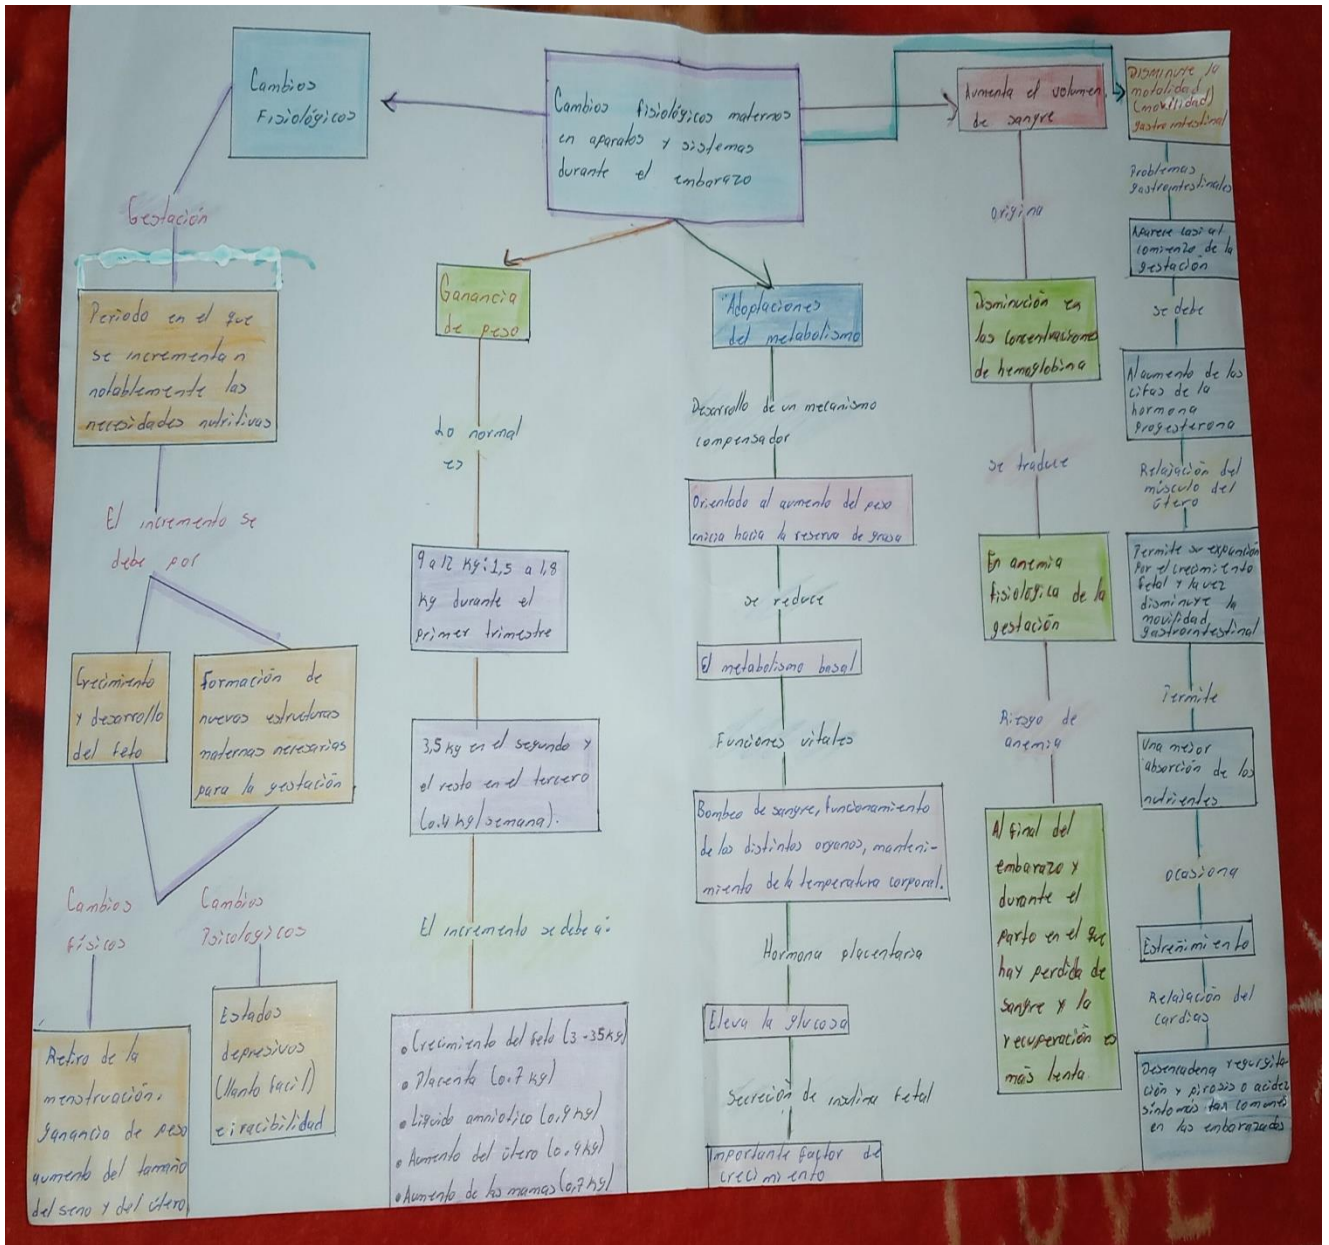 Cambios fisiológicos maternos
en aparatos y sistemas
durante el embarazo
Cambios
Fisiológicos
Gestación
Periodo en el que
se incrementan
notablemente las
necesidades nutritivas
El incremento se
debe por
Crecimiento
y desarrollo
del feto
Formación de
nuevas estructuras
maternas necesarias
para la gestación
Cambios
físicos
Cambios
Psicologicos
Retiro de la
menstruación,
ganancia de peso
aumento del tamaño
del seno y del útero
Estados
depresivos
(llanto facil)
e iracibilidad
Ganancia
de peso
Lo normal
es
9 a 12 Kg: 1,5 a 1,8
Kg durante el
primer trimestre
3,5 kg en el segundo y
el resto en el tercero
(0.4 kg/semana).
El incremento se debe a:
• Crecimiento del feto (3-35kg)
• Placenta (0.7 kg)
• Liquido amniotico (0,9 kg)
• Aumento del útero (0,9kg)
• Aumento de las mamas (0,7 kg)
Adaptaciones
del metabolismo
Desarrollo de un mecanismo
compensador
Orientado al aumento del peso
inicia hacia la reserva de grasa
se reduce
El metabolismo basal
Funciones vitales
Bombeo de sangre, funcionamiento
de los distintos organos, manteni-
miento de la temperatura corporal.
Hormona placentaria
Eleva la glucosa
Secreción de insulina fetal
Importante factor de
crecimiento
Aumenta el volumen
de sangre
origina
Disminución en
las concentraciones
de hemoglobina
se traduce
En anemia
fisiológica de la
gestación
Riesgo de
anemia
Al final del
embarazo y
durante el
parto en el que
hay perdida de
sangre y la
recuperación es
más lenta.
Disminuye la
motalidad
(movilidad)
gastrointestinal
Problemas
gastrointestinales
Aparece casi al
comienzo de la
gestación
se debe
Al aumento de las
cifas de la
hormona
progesterona
Relajación del
músculo del
útero
Permite su expansión
por el crecimiento
fetal y la vez
disminuye la
movilidad
gastrointestinal
Permite
Una mejor
absorción de los
nutrientes
ocasiona
Estreñimiento
Relajación del
cardias
Desencadena regurgita-
ción y pirosis o acidez
sintomas tan comunes
en las embarazadas